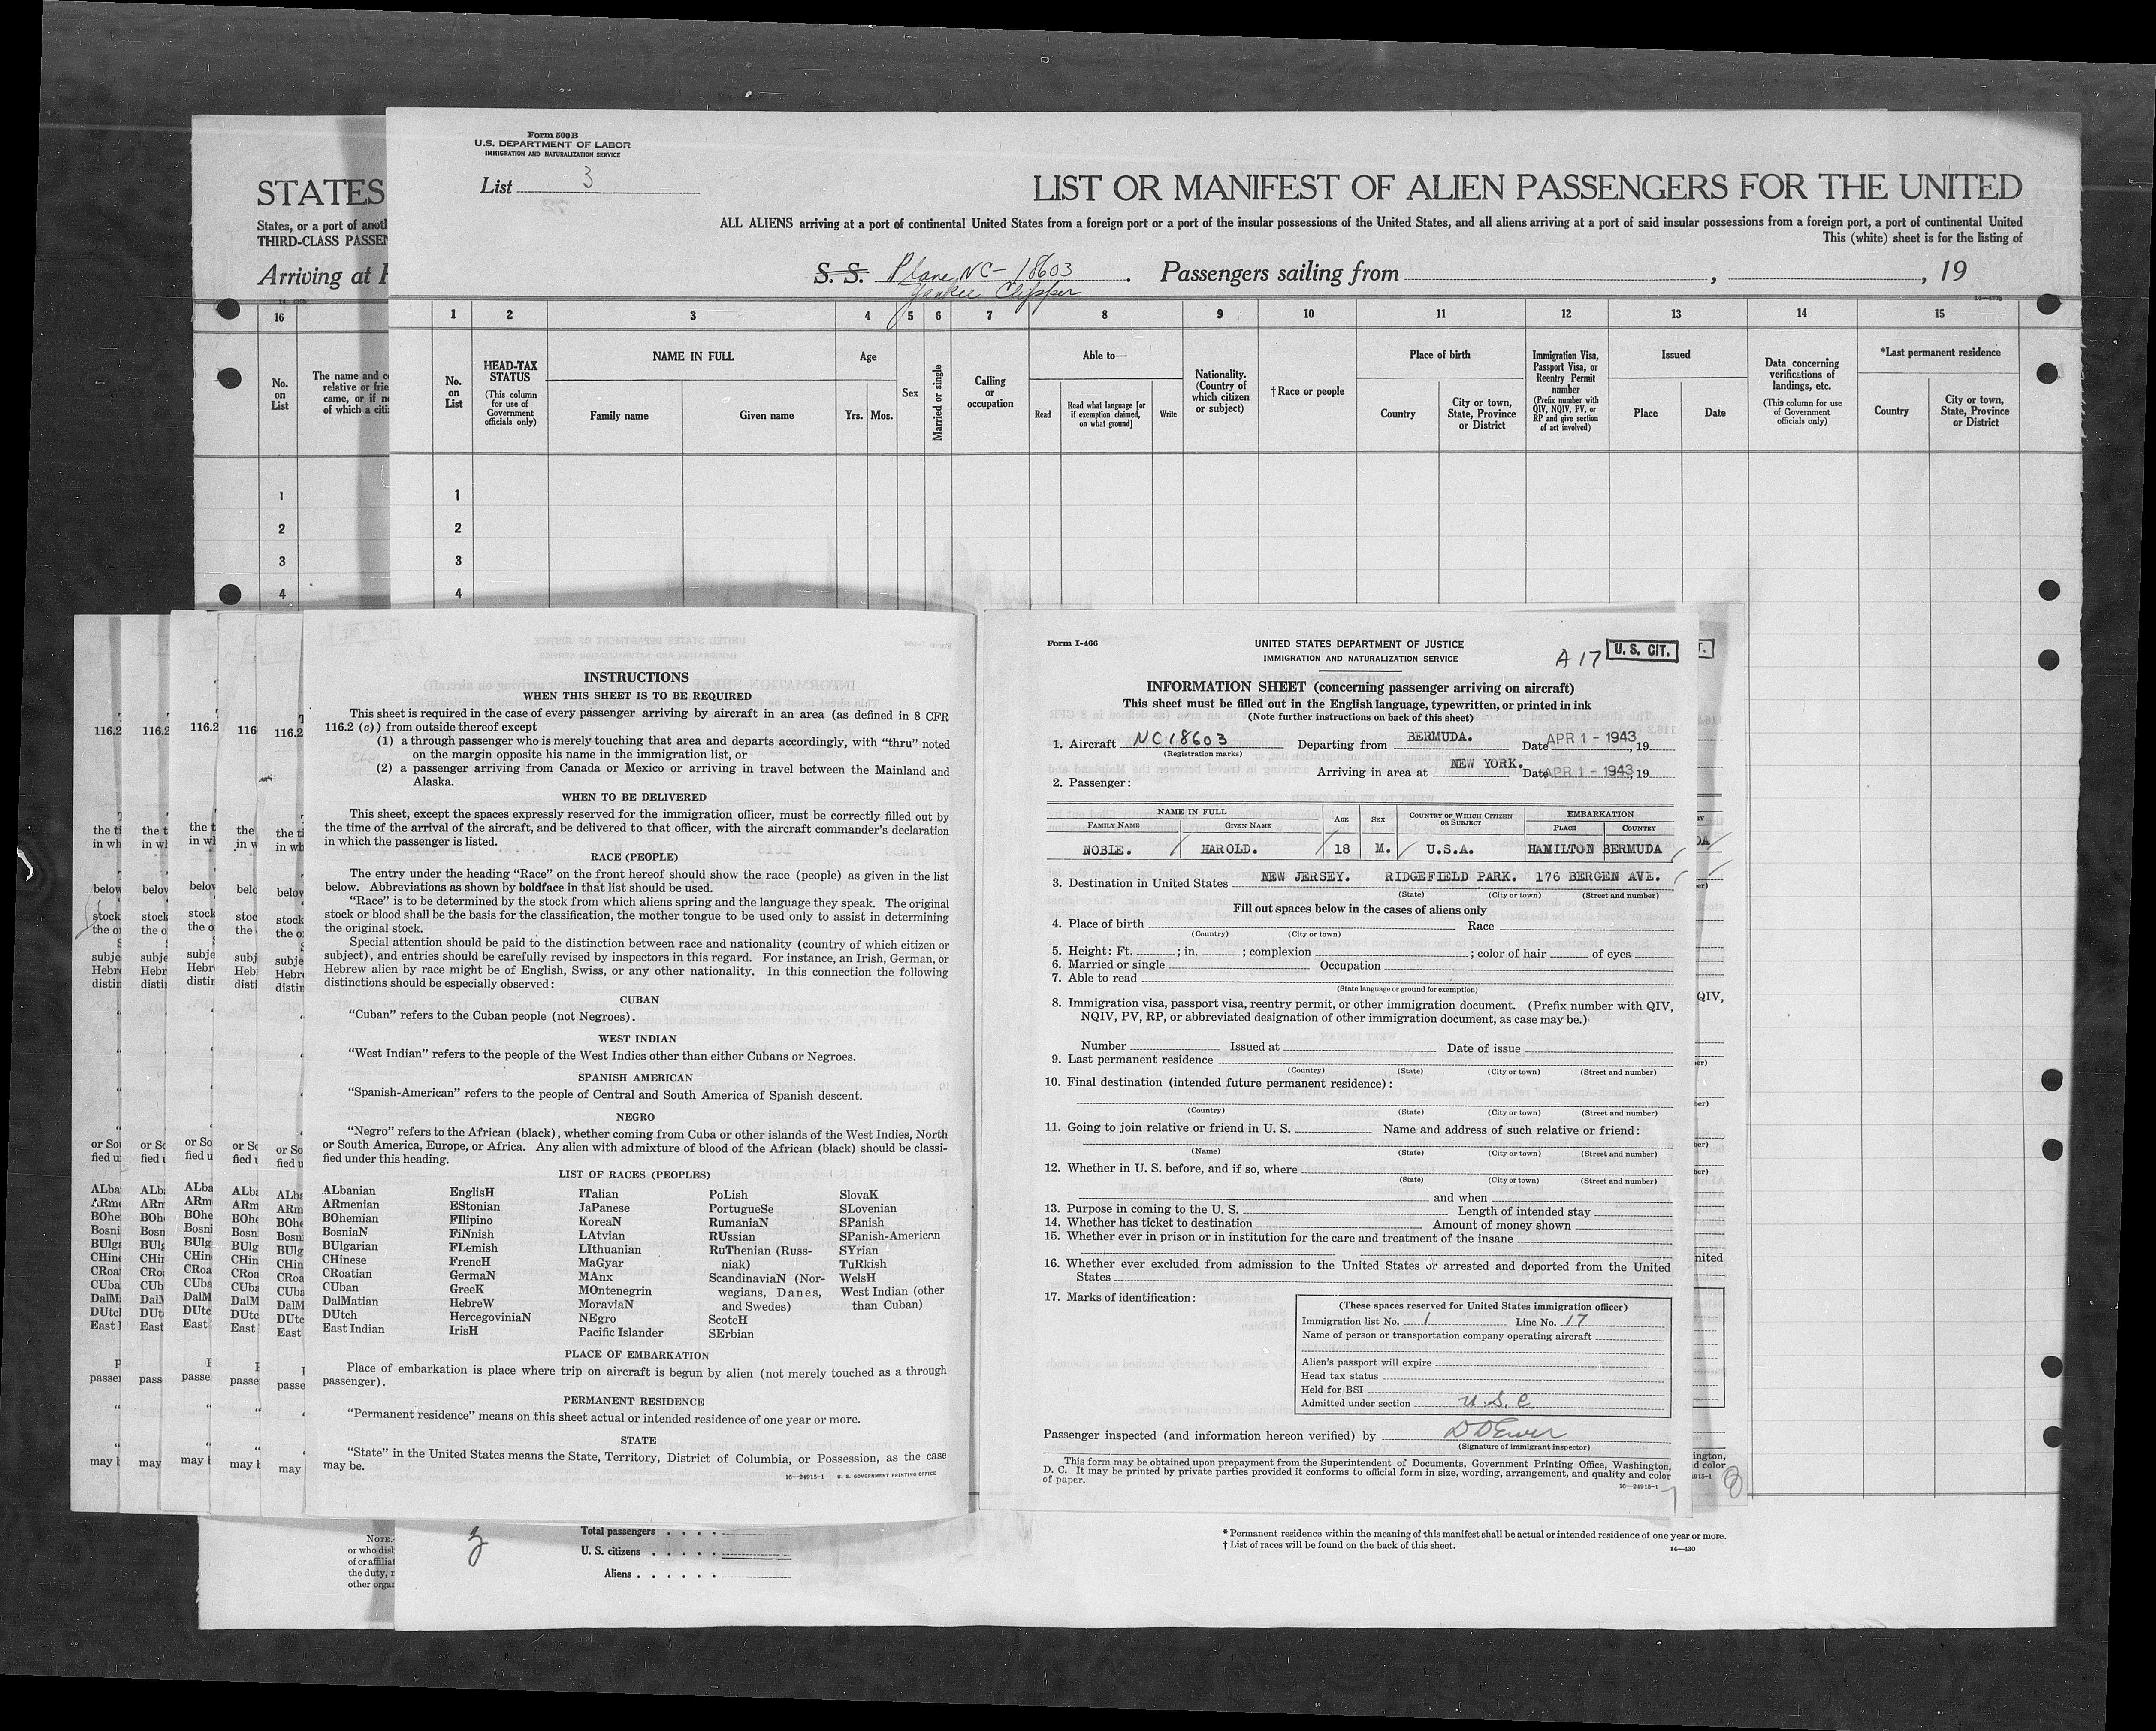 Form 500B
U.S. DEPARTMENT OF LABOR
IMMIGRATION AND NATURALIZATION SERVICE
List 3
STATES
LIST OR MANIFEST OF ALIEN PASSENGERS FOR THE UNITED
States, or a port of anoth
THIRD-CLASS PASSEN
ALL ALIENS arriving at a port of continental United States from a foreign port or a port of the insular possessions of the United States, and all aliens arriving at a port of said insular possessions from a foreign port, a port of continental United
This (white) sheet is for the listing of
Arriving at
S. S. Plane NC-18603
Yankee Clipper
Passengers sailing from , , 19
16 1 2 3 4 5 6 7 8 9 10 11 12 13 14 15
No. on List
The name and c
relative or frie
came, or if n
of which a citi
No. on List
HEAD-TAX STATUS
(This column for use of Government officials only)
NAME IN FULL
Family name
Given name
Age
Yrs.
Mos.
Sex
Married or single
Calling or occupation
Able to—
Read
Read what language [or if exemption claimed, on what ground]
Write
Nationality. (Country of which citizen or subject)
†Race or people
Place of birth
Country
City or town, State, Province or District
Immigration Visa, Passport Visa, or Reentry Permit number
(Prefix number with QIV, NQIV, PV, or RP and give section of act involved)
Issued
Place
Date
Data concerning verifications of landings, etc.
(This column for use of Government officials only)
*Last permanent residence
Country
City or town, State, Province or District
1 1
2 2
3 3
4 4
INSTRUCTIONS
WHEN THIS SHEET IS TO BE REQUIRED
This sheet is required in the case of every passenger arriving by aircraft in an area (as defined in 8 CFR
116.2 (c)) from outside thereof except
(1) a through passenger who is merely touching that area and departs accordingly, with “thru” noted
on the margin opposite his name in the immigration list, or
(2) a passenger arriving from Canada or Mexico or arriving in travel between the Mainland and
Alaska.
WHEN TO BE DELIVERED
This sheet, except the spaces expressly reserved for the immigration officer, must be correctly filled out by
the time of the arrival of the aircraft, and be delivered to that officer, with the aircraft commander’s declaration
in which the passenger is listed.
RACE (PEOPLE)
The entry under the heading “Race” on the front hereof should show the race (people) as given in the list
below. Abbreviations as shown by boldface in that list should be used.
“Race” is to be determined by the stock from which aliens spring and the language they speak. The original
stock or blood shall be the basis for the classification, the mother tongue to be used only to assist in determining
the original stock.
Special attention should be paid to the distinction between race and nationality (country of which citizen or
subject), and entries should be carefully revised by inspectors in this regard. For instance, an Irish, German, or
Hebrew alien by race might be of English, Swiss, or any other nationality. In this connection the following
distinctions should be especially observed:
CUBAN
“Cuban” refers to the Cuban people (not Negroes).
WEST INDIAN
“West Indian” refers to the people of the West Indies other than either Cubans or Negroes.
SPANISH AMERICAN
“Spanish-American” refers to the people of Central and South America of Spanish descent.
NEGRO
“Negro” refers to the African (black), whether coming from Cuba or other islands of the West Indies, North
or South America, Europe, or Africa. Any alien with admixture of blood of the African (black) should be classi-
fied under this heading.
LIST OF RACES (PEOPLES)
ALbanian
ARmenian
BOhemian
BosniaN
BUlgarian
CHinese
CRoatian
CUban
DalMatian
DUtch
East Indian
EnglisH
EStonian
FIlipino
FiNnish
FLemish
FrencH
GermaN
GreeK
HebreW
HercegoviniaN
IrisH
ITalian
JaPanese
KoreaN
LAtvian
LIthuanian
MaGyar
MAnx
MOntenegrin
MoraviaN
NEgro
Pacific Islander
PoLish
PortugueSe
RumaniaN
RUssian
RuThenian (Russ-
niak)
ScandinaviaN (Nor-
wegians, Danes,
and Swedes)
ScotcH
SErbian
SlovaK
SLovenian
SPanish
SPanish-American
SYrian
TuRkish
WelsH
West Indian (other
than Cuban)
PLACE OF EMBARKATION
Place of embarkation is place where trip on aircraft is begun by alien (not merely touched as a through
passenger).
PERMANENT RESIDENCE
“Permanent residence” means on this sheet actual or intended residence of one year or more.
STATE
“State” in the United States means the State, Territory, District of Columbia, or Possession, as the case
may be.
16—24915-1 U. S. GOVERNMENT PRINTING OFFICE
Form I-466
UNITED STATES DEPARTMENT OF JUSTICE
IMMIGRATION AND NATURALIZATION SERVICE
A 17
U. S. CIT.
INFORMATION SHEET (concerning passenger arriving on aircraft)
This sheet must be filled out in the English language, typewritten, or printed in ink
(Note further instructions on back of this sheet)
1. Aircraft NC18603 Departing from BERMUDA. Date APR 1 - 1943, 19
(Registration marks)
Arriving in area at NEW YORK. Date APR 1 - 1943, 19
2. Passenger:
NAME IN FULL
FAMILY NAME
GIVEN NAME
AGE
SEX
COUNTRY OF WHICH CITIZEN OR SUBJECT
EMBARKATION
PLACE
COUNTRY
NOBLE. HAROLD. 18 M. U.S.A. HAMILTON BERMUDA
3. Destination in United States NEW JERSEY. RIDGEFIELD PARK. 176 BERGEN AVE.
(State) (City or town) (Street and number)
Fill out spaces below in the cases of aliens only
4. Place of birth Race
(Country) (City or town)
5. Height: Ft. ; in. ; complexion ; color of hair of eyes
6. Married or single Occupation
7. Able to read
(State language or ground for exemption)
8. Immigration visa, passport visa, reentry permit, or other immigration document. (Prefix number with QIV,
NQIV, PV, RP, or abbreviated designation of other immigration document, as case may be.)
Number Issued at Date of issue
9. Last permanent residence
(Country) (State) (City or town) (Street and number)
10. Final destination (intended future permanent residence):
(Country) (State) (City or town) (Street and number)
11. Going to join relative or friend in U. S. Name and address of such relative or friend:
(Name) (State) (City or town) (Street and number)
12. Whether in U. S. before, and if so, where
(State) (City or town) (Street and number)
and when
13. Purpose in coming to the U. S. Length of intended stay
14. Whether has ticket to destination Amount of money shown
15. Whether ever in prison or in institution for the care and treatment of the insane
16. Whether ever excluded from admission to the United States or arrested and deported from the United
States
17. Marks of identification:
(These spaces reserved for United States immigration officer)
Immigration list No. 1 Line No. 17
Name of person or transportation company operating aircraft
Alien’s passport will expire
Head tax status
Held for BSI
Admitted under section U.S.C.
Passenger inspected (and information hereon verified) by
(Signature of immigrant inspector)
This form may be obtained upon prepayment from the Superintendent of Documents, Government Printing Office, Washington,
D. C. It may be printed by private parties provided it conforms to official form in size, wording, arrangement, and quality and color
of paper.
16—24915-1
Total passengers
U. S. citizens
Aliens
NOTE.
or who disb
of or affiliat
the duty, r
other organ
3
* Permanent residence within the meaning of this manifest shall be actual or intended residence of one year or more.
† List of races will be found on the back of this sheet.
14—430